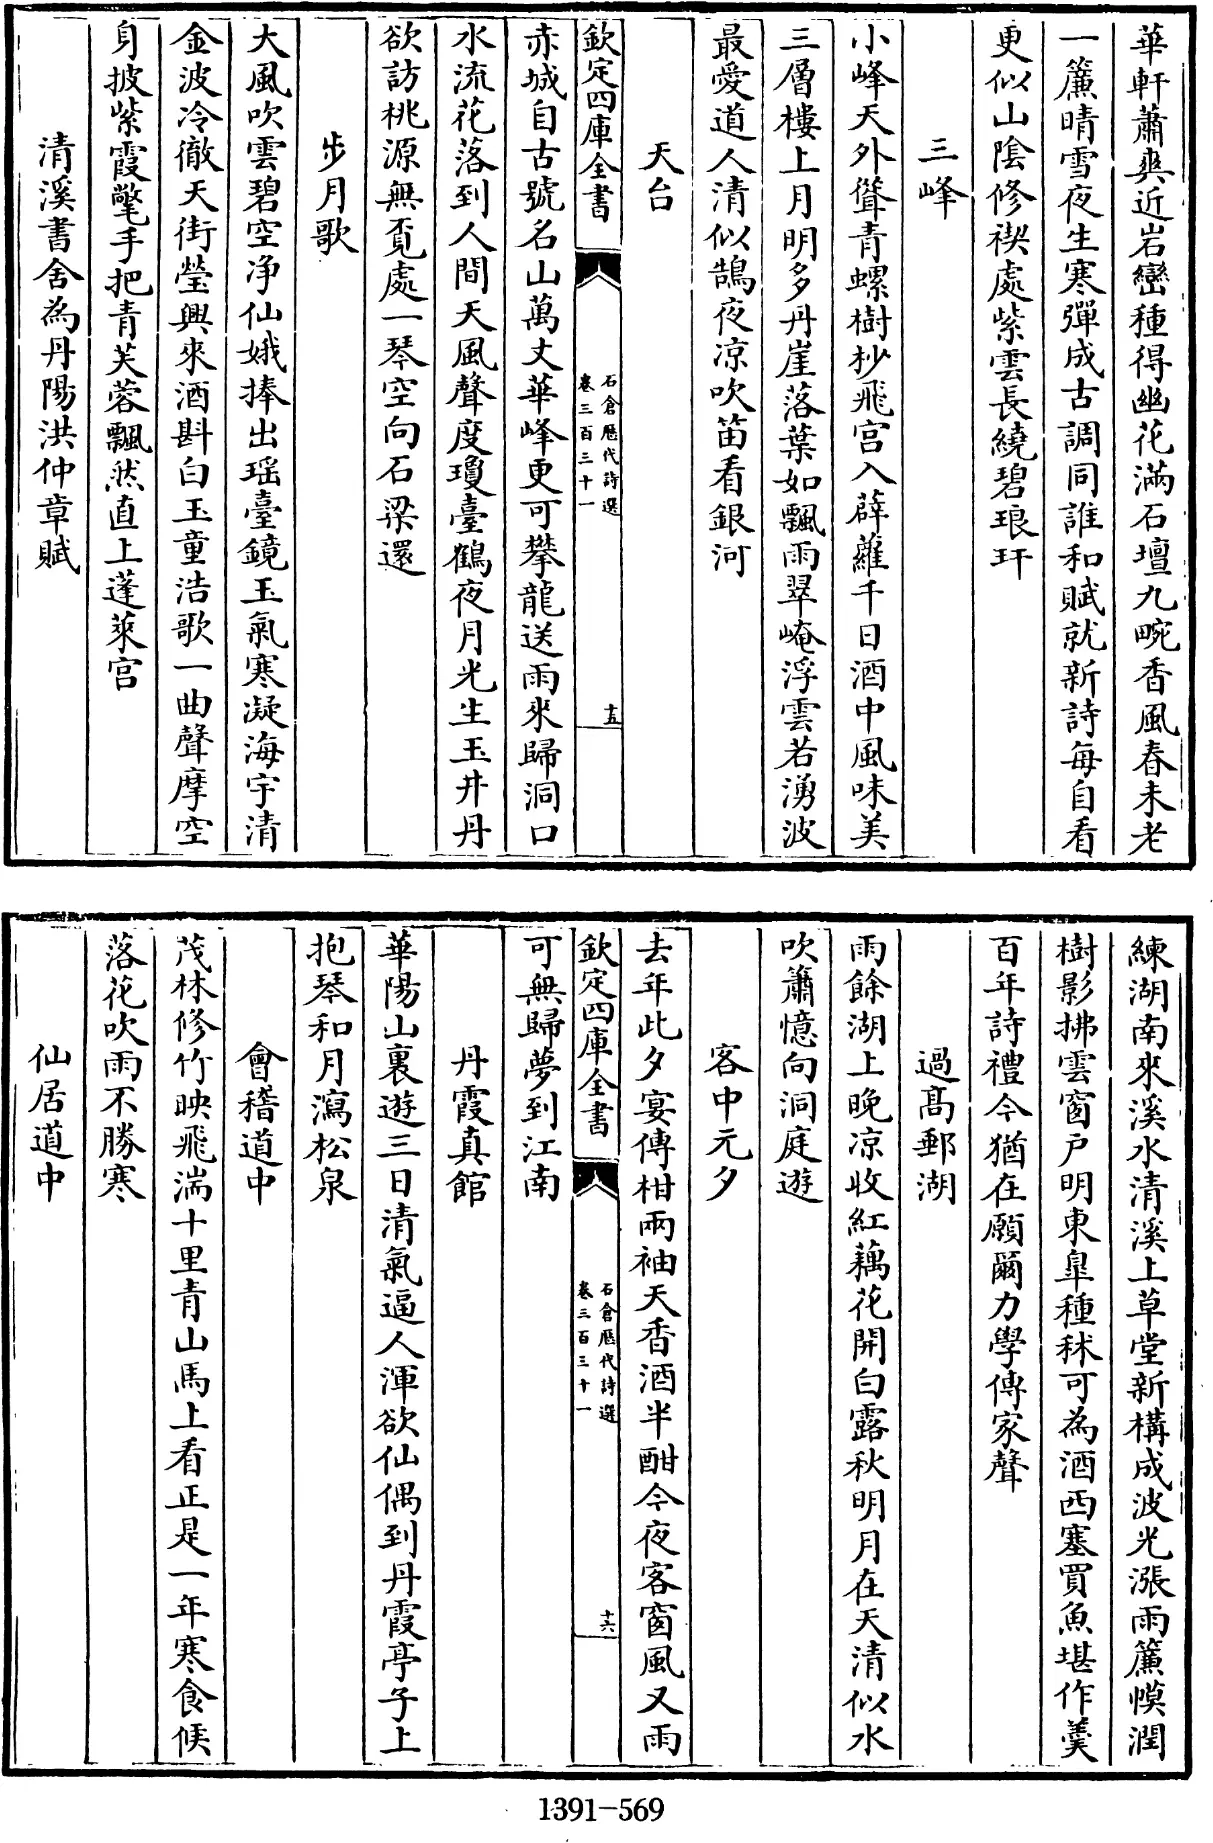 華軒蕭爽近岩巒種得幽花滿石壇九畹香風春未老
一簾晴雪夜生寒彈成古調同誰和賦就新詩每自看
更似山陰修禊處紫雲長繞碧琅玕
三峰
小峰天外聳青螺樹杪飛宫入薜蘿千日酒中風味美
三層樓上月明多丹崖落葉如飄雨翠崦浮雲若湧波
最愛道人清似鵠夜凉吹笛看銀河
天台
欽定四庫全書
石倉歴代詩選
卷三百三十一
十五
赤城自古號名山萬丈華峰更可攀龍送雨來歸洞口
水流花落到人間天風聲度瓊臺鶴夜月光生玉井丹
欲訪桃源無覓處一琴空向石梁還
步月歌
大風吹雲碧空净仙娥捧出瑶臺鏡玉氣寒凝海宇清
金波冷徹天街瑩興來酒斟白玉童浩歌一曲聲摩空
身披紫霞氅手把青芙蓉飄然直上蓬萊宫
清溪書舍為丹陽洪仲章賦
練湖南來溪水清溪上草堂新構成波光漲雨簾幙潤
樹影拂雲窗户明東臯種秫可為酒西塞買魚堪作羮
百年詩禮今猶在願爾力學傳家聲
過髙郵湖
雨餘湖上晚凉收紅藕花開白露秋明月在天清似水
吹簫憶向洞庭遊
客中元夕
去年此夕宴傳柑兩袖天香酒半酣今夜客窗風又雨
欽定四庫全書
石倉歴代詩選
卷三百三十一
十六
可無歸夢到江南
丹霞真館
華陽山裏遊三日清氣逼人渾欲仙偶到丹霞亭子上
抱琴和月瀉松泉
會稽道中
茂林修竹映飛湍十里青山馬上看正是一年寒食候
落花吹雨不勝寒
仙居道中
1391-569